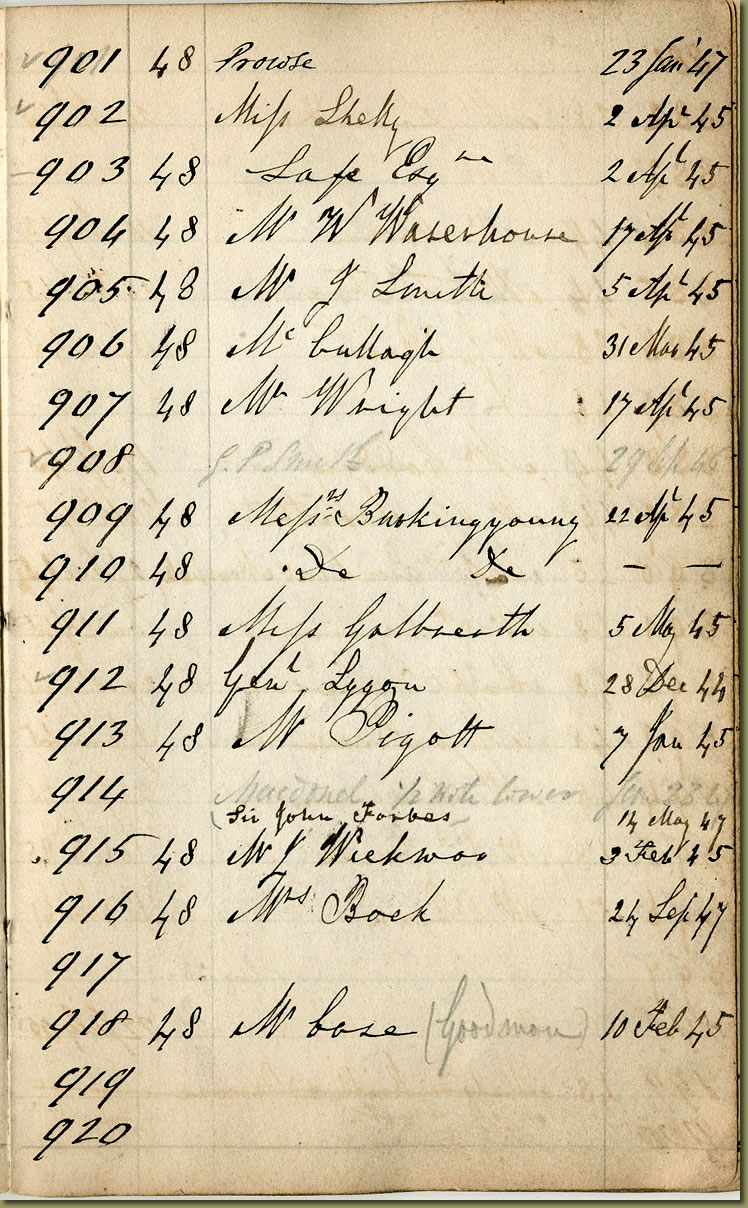 901 48 Prowse 23 Jan 47
902 Miss Shelly 2 Apl 45
903 48 Esqre 2 Apl 45
904 48 Mr W Waserhouse 17 Apl 45
905 48 Mr J Smith 5 Apl 45
906 48 Mc Cullagh 31 Mar 45
907 48 Mr Wright 17 Apl 45
908 G. P. Smith 29 46
909 48 Messrs 22 Apl 45
910 48 Do Do — —
911 48 Miss Galbreath 5 May 45
912 48 Genl Lygon 28 Dec 44
913 48 Mr Pigott 7 Jan 45
914 Macdonel 1/2 note lower Jan 23
Sir John Forbes 14 May 47
915 48 Mr J 3 Feb 45
916 48 Mrs Bock 24 Sep 47
917
918 48 Mr Case (Goodman) 10 Feb 45
919
920